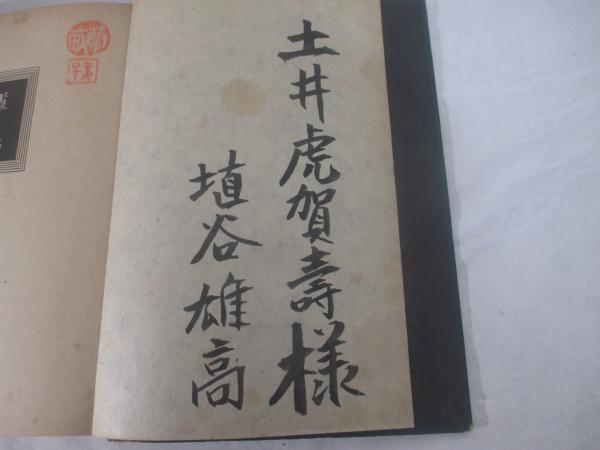 土井虎賀壽様
埴谷雄高